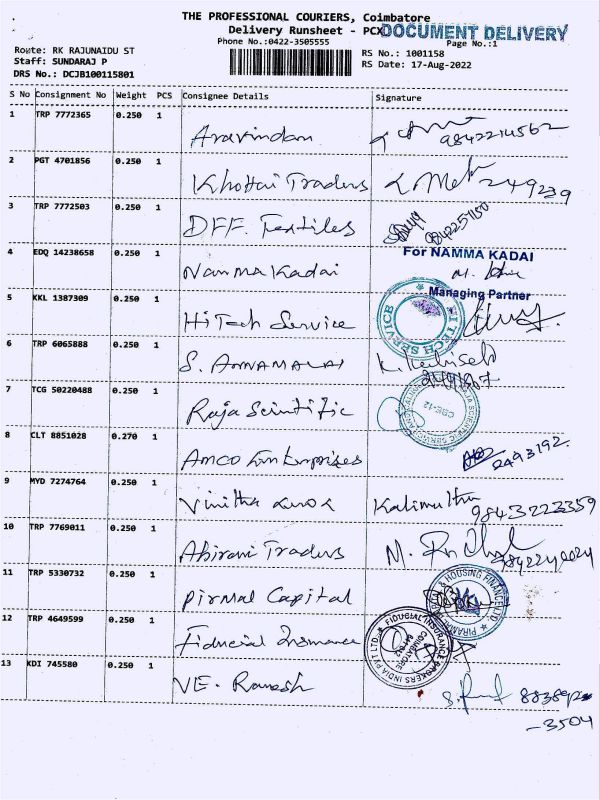 THE PROFESSIONAL COURIERS, Coimbatore
Delivery Runsheet - PCX DOCUMENT DELIVERY
Phone No.:0422-3505555
Page No.:1
Route: RK RAJUNAIDU ST
RS No.: 1001158
Staff: SUNDARAJ P
RS Date: 17-Aug-2022
DRS No.: DCJB100115801
S No Consignment No Weight PCS Consignee Details Signature
1 TRP 7772365 0.250 1 Aravindan 9842214562
2 PGT 4701856 0.250 1 Khottai Traders 249239
3 TRP 7772503 0.250 1 DFF. Textiles 9842251150
4 EDQ 14238658 0.250 1 Namma Kadai For NAMMA KADAI
Managing Partner
5 KKL 1387309 0.250 1 HiTech Service HITECH SERVICE
6 TRP 6065888 0.250 1 S. ANNAMALAI
7 TCG 50220488 0.250 1 Raja Scintific CBE-12
8 CLT 8851028 0.270 1 Amco Enterprises 2493192
9 MYD 7274764 0.250 1 Vinitha Kalimuthu
9843223359
10 TRP 7769011 0.250 1 Abirami Traders
11 TRP 5330732 0.250 1 Pirmal Capital PIRAMAL & HOUSING FINANCE LTD.
12 TRP 4649599 0.250 1 Fiducial Insurance FIDUCIAL INSURANCE BROKERS INDIA PVT LTD COIMBATORE
13 KDI 745580 0.250 1 VE. Ramesh
-3504